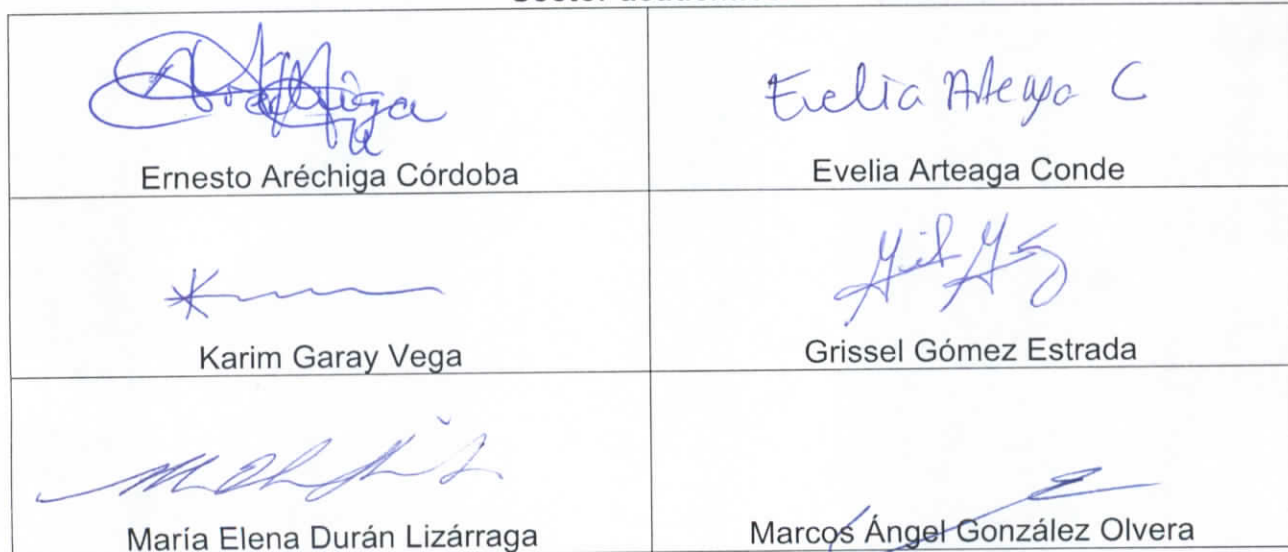 Ernesto Aréchiga Córdoba
Evelia Arteaga C
Evelia Arteaga Conde
Karim Garay Vega
Grissel Gómez Estrada
María Elena Durán Lizárraga
Marcos Ángel González Olvera